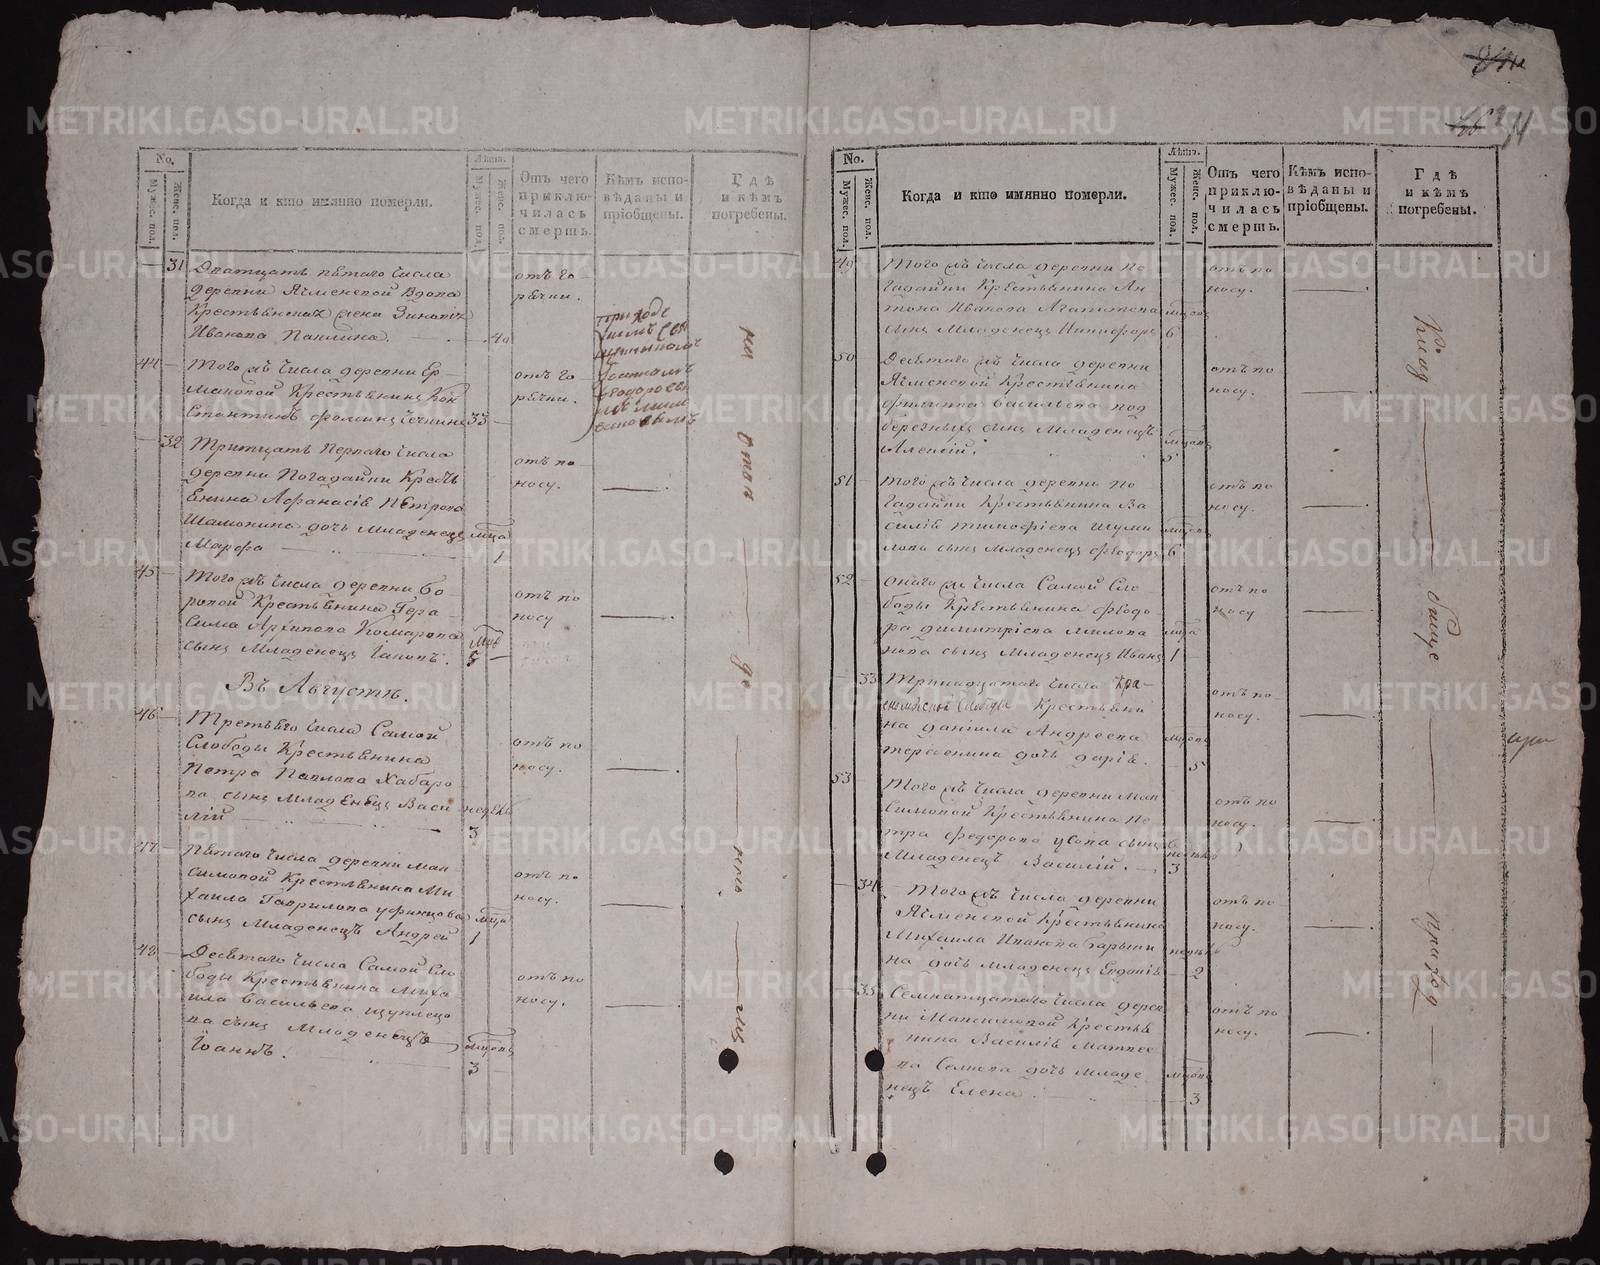 No.
Мужес. пол.
Женс. пол.
Когда и кто имянно померли.
Лѣта.
Мужес. пол.
Женс. пол.
Отъ чего приклю-
чилась
смерть.
Кѣмъ испо-
вѣданы и
пріобщены.
Гдѣ
и кѣмъ
погребены.
31
Дватцать пѣтаго числа
деревни Ячменевой Вдова
Крестьянская жена Зиновія
Иванова Павлина.
40
отъ го-
рячки.
44
Того жъ числа деревни Ер-
маковой Крестьянинъ Кон
стантинъ Фоминъ
33
отъ го-
рячки.
32
Тритцать Перваго числа
деревни Погадайки Кресть
янина Афанасія Петрова
Шамонина дочь Младенецъ
Марфа
мца
1
отъ по
носу.
45
Того жъ числа деревни Бо-
ровой Крестьянина Гера-
сима Архипова Комарова
сынъ Младенецъ Іаковъ.
отъ по
носу
Въ Августѣ.
46
Третьяго числа Самой
Слободы Крестьянина
Петра Павлова Хабаро
ва сынъ Младенецъ Васи
лій
недель
3
отъ по
носу.
47
Пѣтаго числа деревни Мак-
симовой Крестьянина Ми-
хаила Гаврилова Уфинцова
сынъ Младенецъ Андрей
мца
1
отъ по
носу.
48
Десятаго числа Самой Сло
боды Крестьянина Миха-
ила Васильева
ва сынъ Младенецъ
Іоаннъ.
мцовъ
3
отъ по
носу.
на
отво
до
номъ
No.
Мужес. пол.
Женс. пол.
Когда и кто имянно померли.
Лѣта.
Мужес. пол.
Женс. пол.
Отъ чего
приклю-
чилась
смерть.
Кѣмъ испо-
вѣданы и
пріобщены.
Гдѣ
и кѣмъ
погребены.
49
Того жъ числа деревни По
гадайки Крестьянина Ан
тона Иванова
сынъ Младенецъ Никифоръ
мцовъ
6
отъ по
носу.
50
Десятаго жъ числа деревни
Ячменевой Крестьянина
Филиппа Васильева Под
береzныхъ сынъ Младенецъ
Алексій.
мцовъ
5
отъ по
носу.
51
Того жъ числа деревни По
гадайки Крестьянина Ва
силія Тимофіева Шуми
лова сынъ Младенецъ Фѣодоръ
мцовъ
6
отъ по
носу.
52
Онаго жъ числа Самой Сло-
боды Крестьянина Фѣодо
ра Димитріева Милова
нова сынъ Младенецъ Иванъ
мца
1
отъ по
носу
33
Тринадцатаго числа Кра-
Слободы Крестьяни
на Даніила Андреева
Теребенина дочь Дарія.
мцовъ
5
отъ по
носу.
53
Того жъ числа деревни Мак
симовой Крестьянина Пе
тра Федорова сынъ
Младенецъ Василій.
3
отъ по
носу.
34
Того жъ числа деревни
Ячменевой Крестьянина
Михаила Иванова Барыш
на дочь Младенецъ Евдокія
недель
2
отъ по
носу.
35
Семнатцатаго числа дерев
ни Максимовой Крестья
нина Василія Матвее
ва дочь Младе
нецъ Елена.
мцовъ
3
отъ по
носу.
METRIKI.GASO-URAL.RU